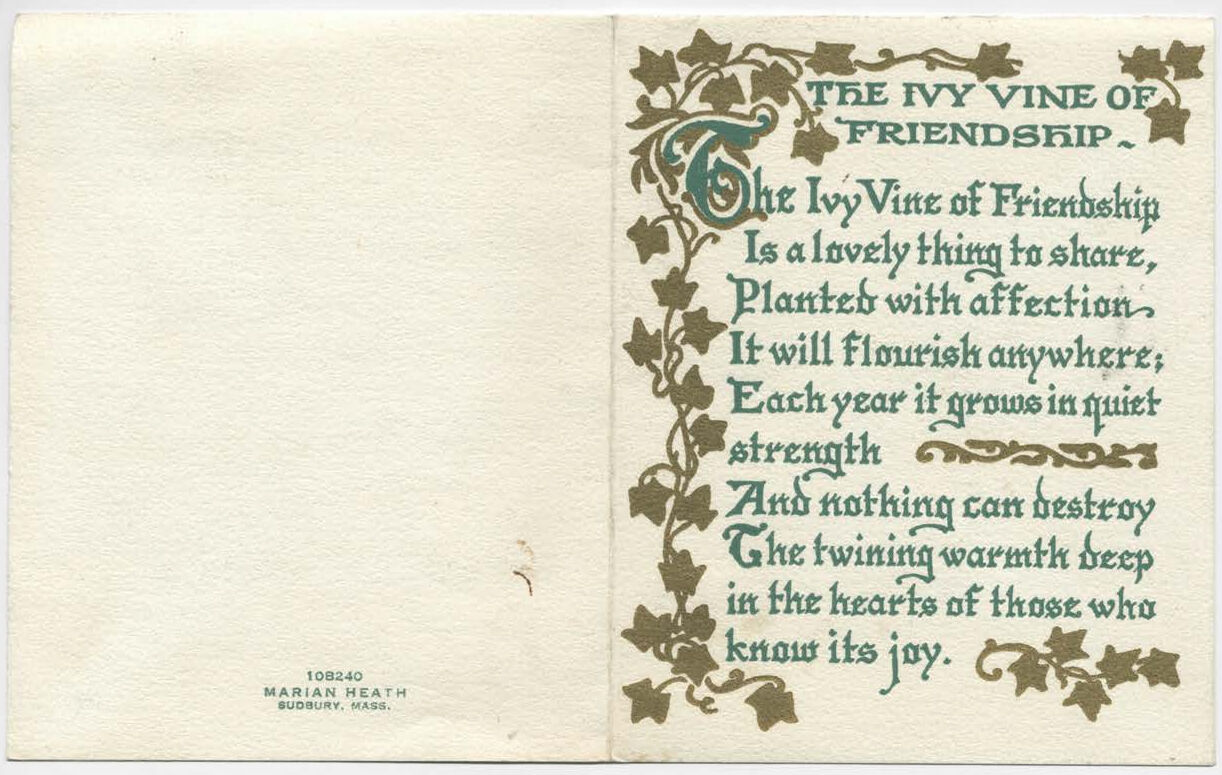 108240
MARIAN HEATH
SUDBURY, MASS.
THE IVY VINE OF
FRIENDSHIP~
The Ivy Vine of Friendship
Is a lovely thing to share,
Planted with affection
It will flourish anywhere;
Each year it grows in quiet
strength
And nothing can destroy
The twining warmth deep
in the hearts of those who
know its joy.